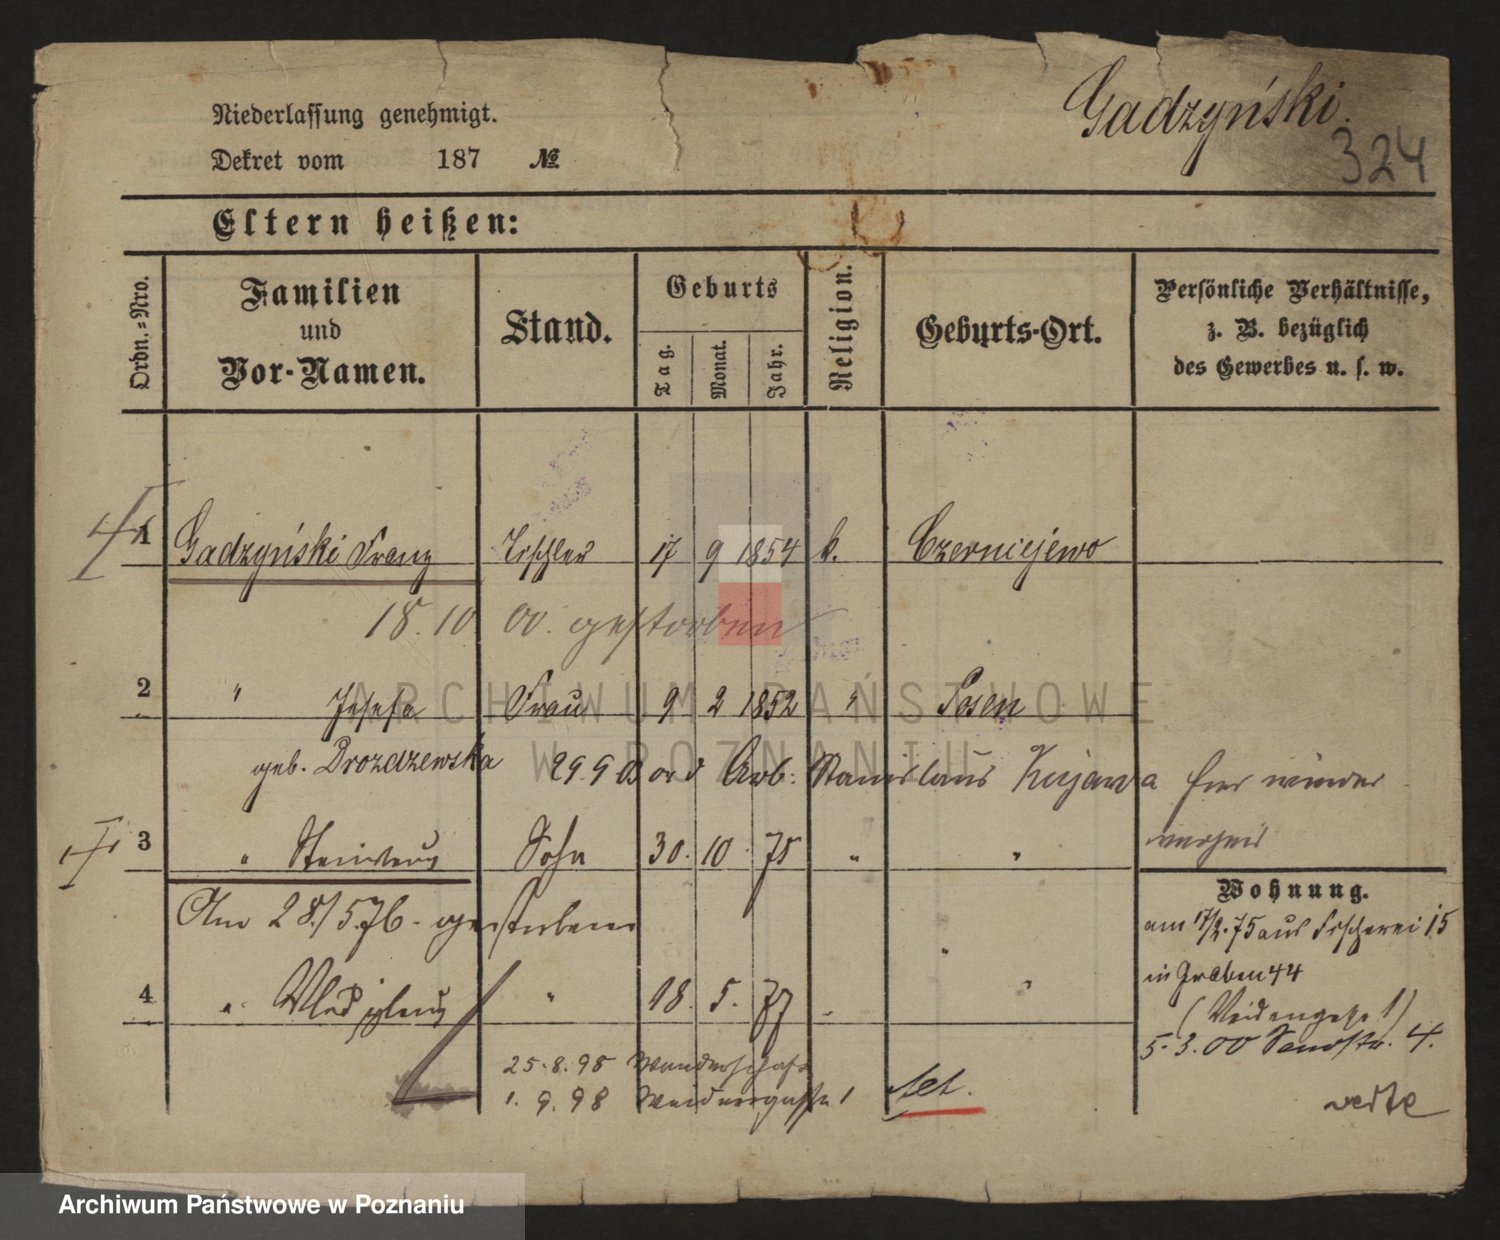 Gadzyński.
324
Niederlassung genehmigt.
Dekret vom 187 №
Eltern heißen:
Ordn.=Nro.
Familien und Vor-Namen.
Stand.
Geburts
Tag.
Monat.
Jahr.
Religion.
Geburts-Ort.
Persönliche Verhältnisse,
z. B. bezüglich
des Gewerbes u. s. w.
1 Gadzyński Franz Tischler 17 9 1854 k. Czerniejewo
18. 10. 00. gestorben
2 " Josefa Frau 9 2 1852 " Posen
geb. Drozdzewska 29. 9 Arb: Stanislaus Kujawa
3 " Sohn 30. 10. 75 " "
Am 28./5.76 - gestorben
4 " " 18. 5. 77 "
25. 8. 98 Wanderschaft
1. 9. 98 Weidengasse 1
Wohnung.
am 17/2. 75 aus Fischerei 15
in Graben 44
(Weidengasse 1)
5. 3. 00 Sandstr. 4.
verte
ARCHIWUM PAŃSTWOWE
W POZNANIU
Archiwum Państwowe w Poznaniu